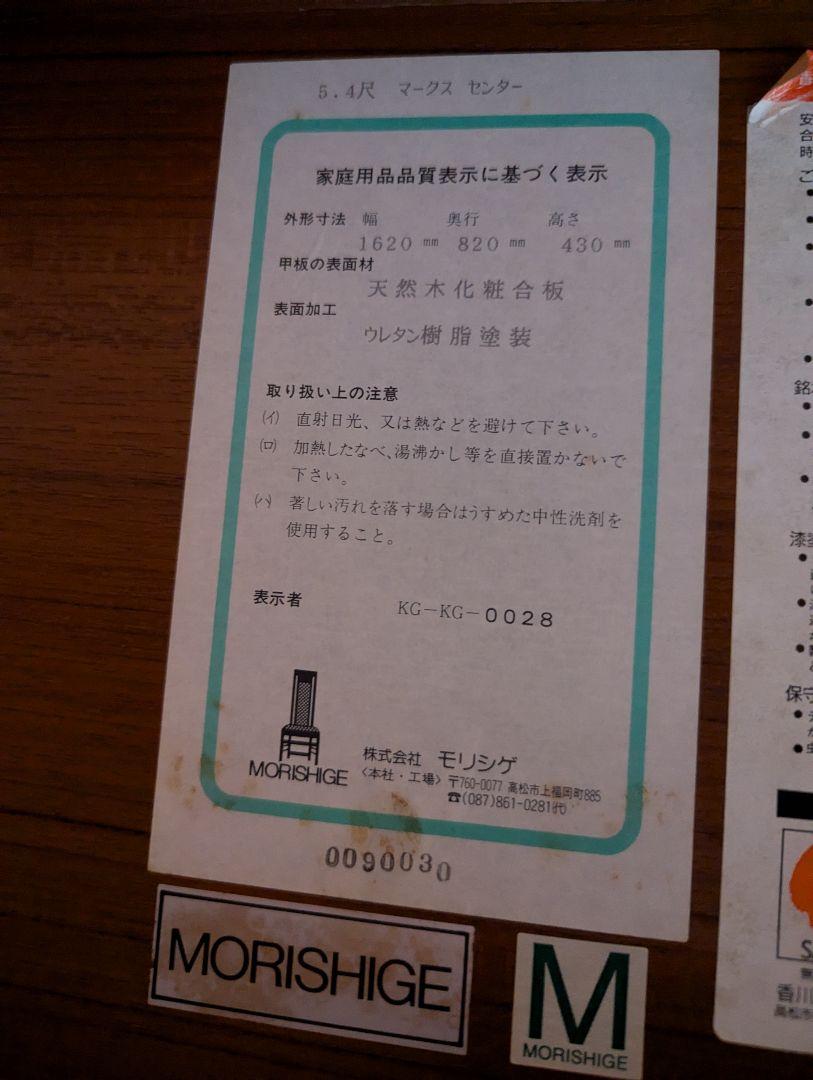 5.4尺 マークス センター
家庭用品品質表示に基づく表示
外形寸法 幅 奥行 高さ
1620 mm 820 mm 430 mm
甲板の表面材
天然木化粧合板
表面加工
ウレタン樹脂塗装
取り扱い上の注意
(イ) 直射日光、又は熱などを避けて下さい。
(ロ) 加熱したなべ、湯沸かし等を直接置かないで
下さい。
(ハ) 著しい汚れを落す場合はうすめた中性洗剤を
使用すること。
表示者
KG-KG-0028
MORISHIGE
株式会社 モリシゲ
〈本社・工場〉〒760-0077 高松市上福岡町885
☎(087)861-0281(代)
0090030
MORISHIGE
M
MORISHIGE
保守
香川
高松市